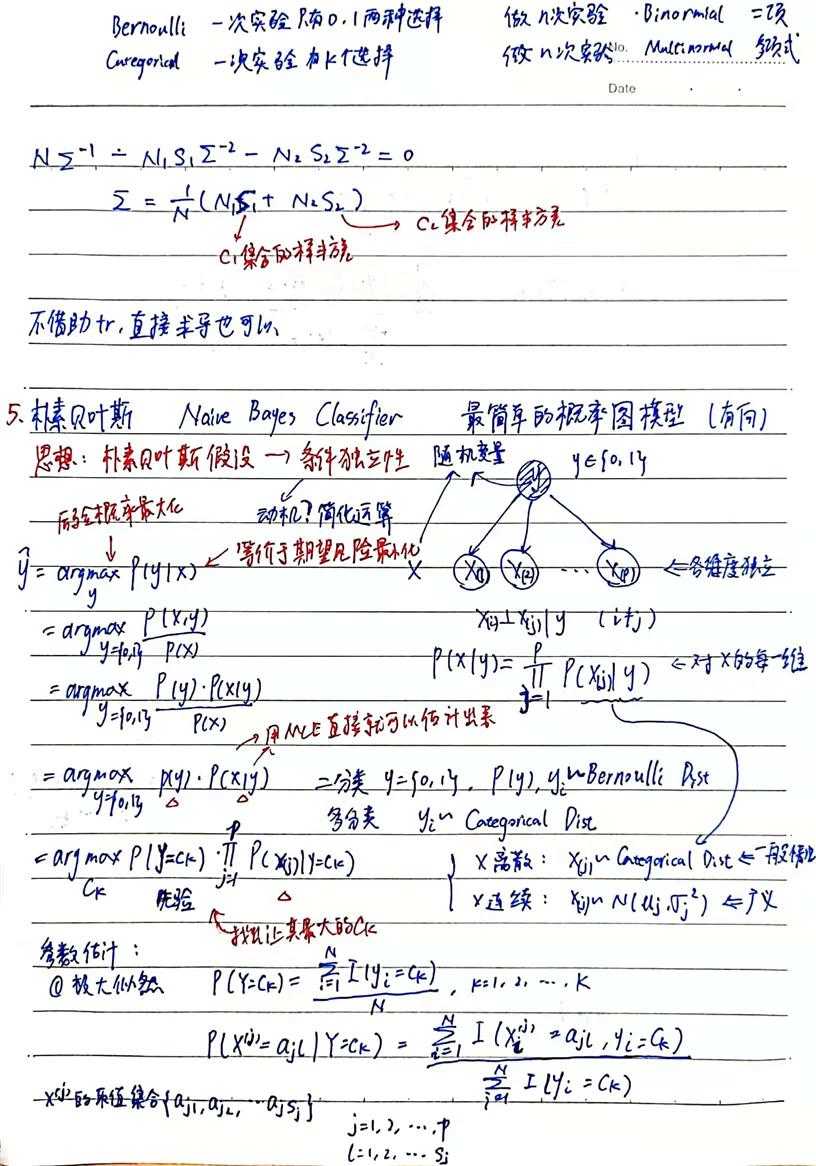 Bernoulli 一次实验只有0.1两种选择 做n次实验 · Binormial 二项
Categorical 一次实验有K个选择 做n次实验 Multinormial 多项式
No.
Date
NΣ⁻¹ - N₁S₁Σ⁻² - N₂S₂Σ⁻² = 0
Σ = 1/N (N₁S₁ + N₂S₂)
C₂集合的样本方差
C₁集合的样本方差
不借助tr,直接求导也可以、
5、朴素贝叶斯 Naive Bayes Classifier 最简单的概率图模型 (有向)
思想: 朴素贝叶斯假设 → 条件独立性 随机变量 y y∈{0,1}
后验概率最大化 动机?简化运算
等价于期望风险最小化
ŷ = argmax_y P(y|x) X X(1) X(2) ... X(p) ⇐各维度独立
= argmax_{y={0,1}} P(x,y)/P(x) X(i)⊥X(j)|y (i≠j)
P(x|y) = ∏_{j=1}^{p} P(X(j)|y) ⇐对X的每一维
= argmax_{y={0,1}} P(y)·P(x|y)/P(x)
→用MLE直接就可以估计出来
= argmax_{y={0,1}} p(y)·P(x|y) 二分类 y={0,1}, P(y), yᵢ~Bernoulli Dist
多分类 yᵢ~ Categorical Dist
= argmax_{Ck} P(Y=Ck)·∏_{j=1}^{p} P(X(j)|Y=Ck) { X离散: X(j)~Categorical Dist ⇐一般情况
先验 X连续: X(j)~N(μj,σj²) ⇐广义
找出让其最大的CK
参数估计:
① 极大似然 P(Y=Ck) = ∑_{i=1}^{N} I(yᵢ=Ck) / N , k=1,2,···,K
P(X⁽ʲ⁾=ajl|Y=Ck) = ∑_{i=1}^{N} I(Xᵢ⁽ʲ⁾=ajl, yᵢ=Ck) / ∑_{i=1}^{N} I(yᵢ=Ck)
X⁽ʲ⁾的取值集合{aj1,aj2,···ajSj}
j=1,2,···,p
l=1,2,···Sj